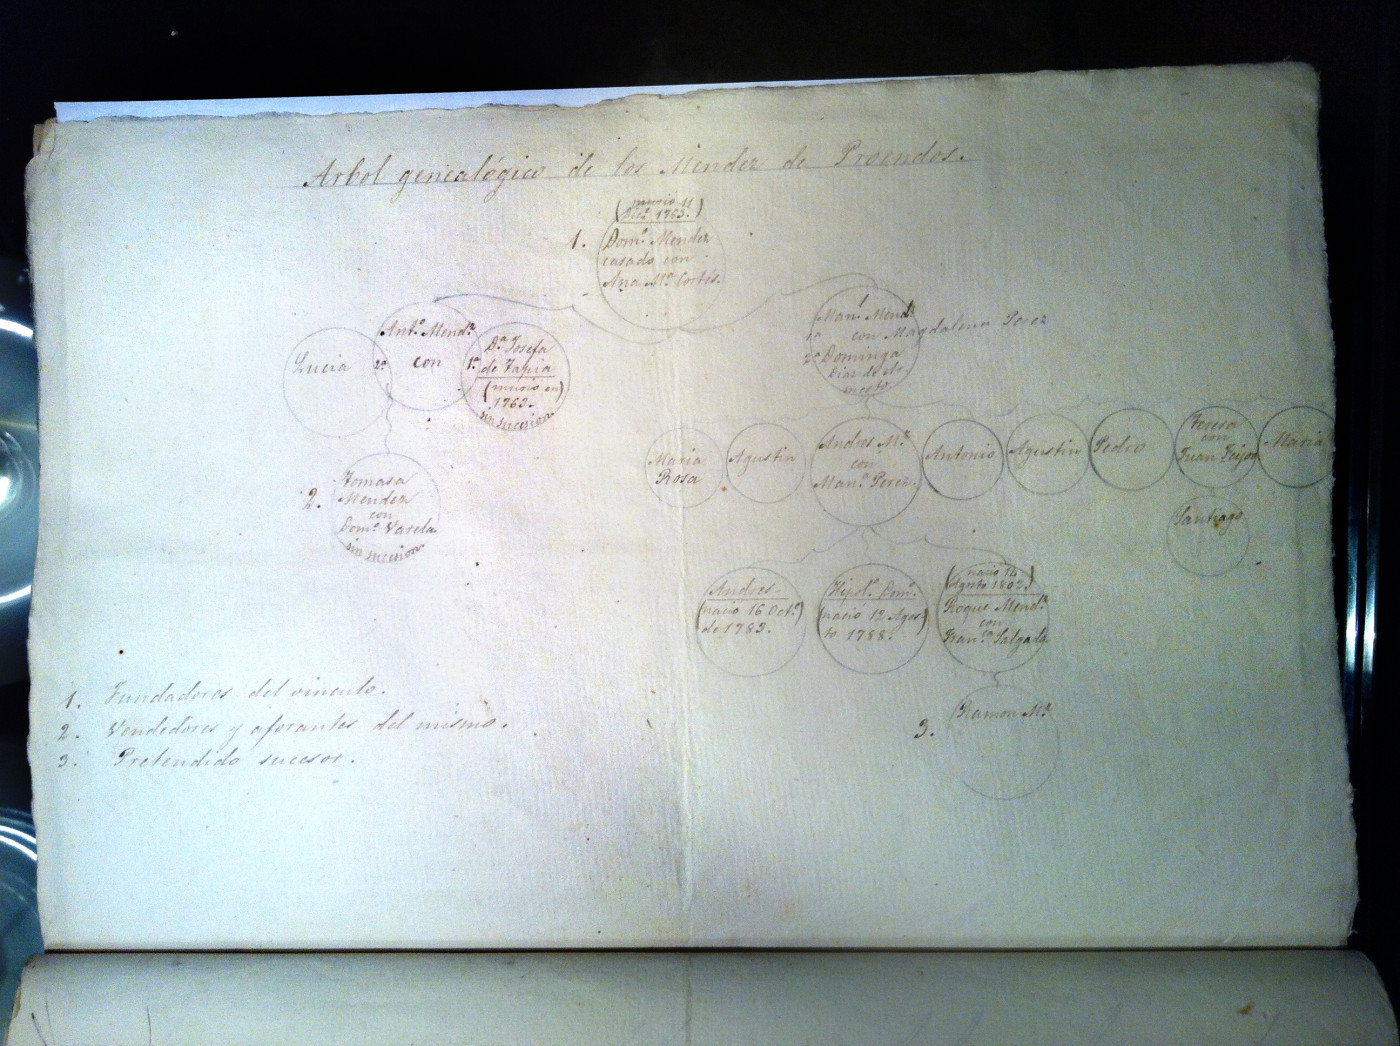 Arbol genealógico de los Mendez de Proendos.
(murió 11
Dic.e 1763.)
1. Dom.o Mendez
casado con
Ana M.a Cortés.
Lucia
2.a
Ant.o Mend.z
con
1.a
D.a Josefa
de Tapia
(murió en
1762.)
sin sucesion.
Man.l Mend.z
1.a con Magdalena Perez
2.a Dominga
Diaz de Ar-
mesto
2. Tomasa
Mendez
con
Dom.o Varela
sin sucesion.
Maria
Rosa
Agustin
Andres M.z
con
Man.a Perez.
Antonio
Agustin
Pedro
Teresa
con
Juan Feijoo
Maria
Santiago
Andres
(nació 16 Oct.e)
de 1785.
Hipol.o Dom.o
(nació 12 Agos)
to 1788.
(nació 14
Agosto 1802.)
Roque Mend.z
con
Fran.ca Salgado
3. Ramon M.z
1. Fundadores del vinculo.
2. Vendedores y aforantes del mismo.
3. Pretendido sucesor.